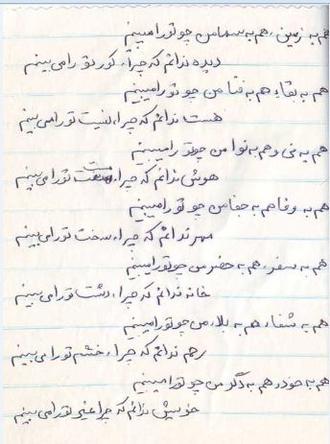 هم به زمین، هم به سما من چو تو را میبینم
دیده ندانم که چرا، کور تو را می بینم
هم به بقاء هم به فنا من چو تو را میبینم
هست ندانم که چرا، نیست تو را می بینم
هم به نی و هم به نوا من چو تو را میبینم
هوش ندانم که چرا، مست تو را می بینم
هم به وفا هم به جفا من چو تو را میبینم
مهر ندانم که چرا، سخت تو را می بینم
هم به سفر، هم به حضر من چو تو را میبینم
خانه ندانم که چرا، دشت تو را می بینم
هم به شفاء، هم به بلاء، من چو تو را میبینم
رحم ندانم که چرا، خشم تو را می بینم
هم به خود، هم به دگر من چو تو را میبینم
خویش ندانم که چرا غیر تو را می بینم